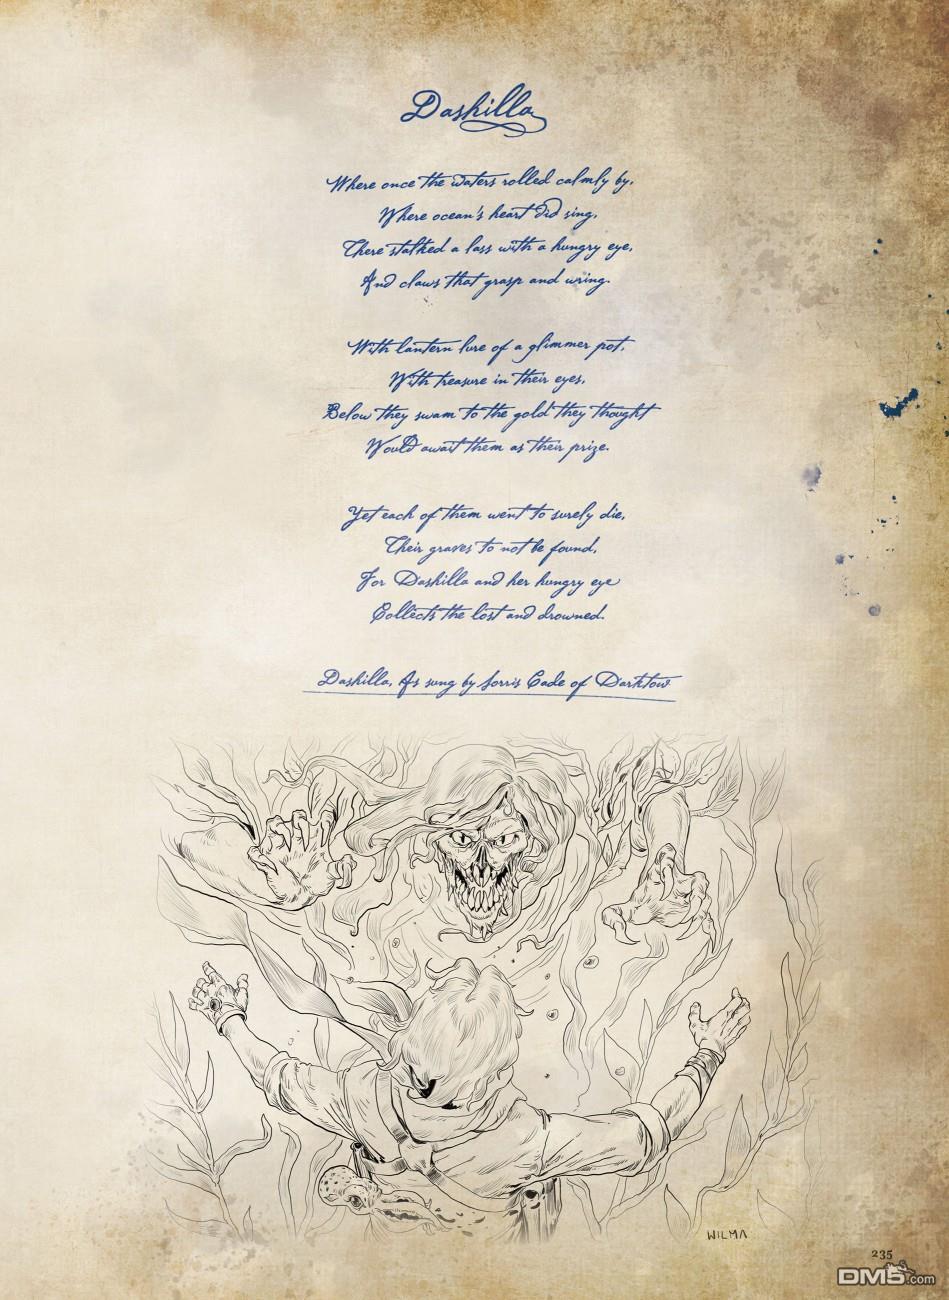 Dashilla
Where once the waters rolled calmly by,
Where ocean's heart did sing,
There stalked a lass with a hungry eye,
And claws that grasp and wring.
With lantern lure of a glimmer pot,
With treasure in their eyes,
Below they swam to the gold they thought
Would await them as their prize.
Yet each of them went to surely die,
Their graves to not be found,
For Dashilla and her hungry eye
Collects the lost and drowned.
Dashilla, As sung by Sorris Cade of Darktow
WILMA
235
DM5.com